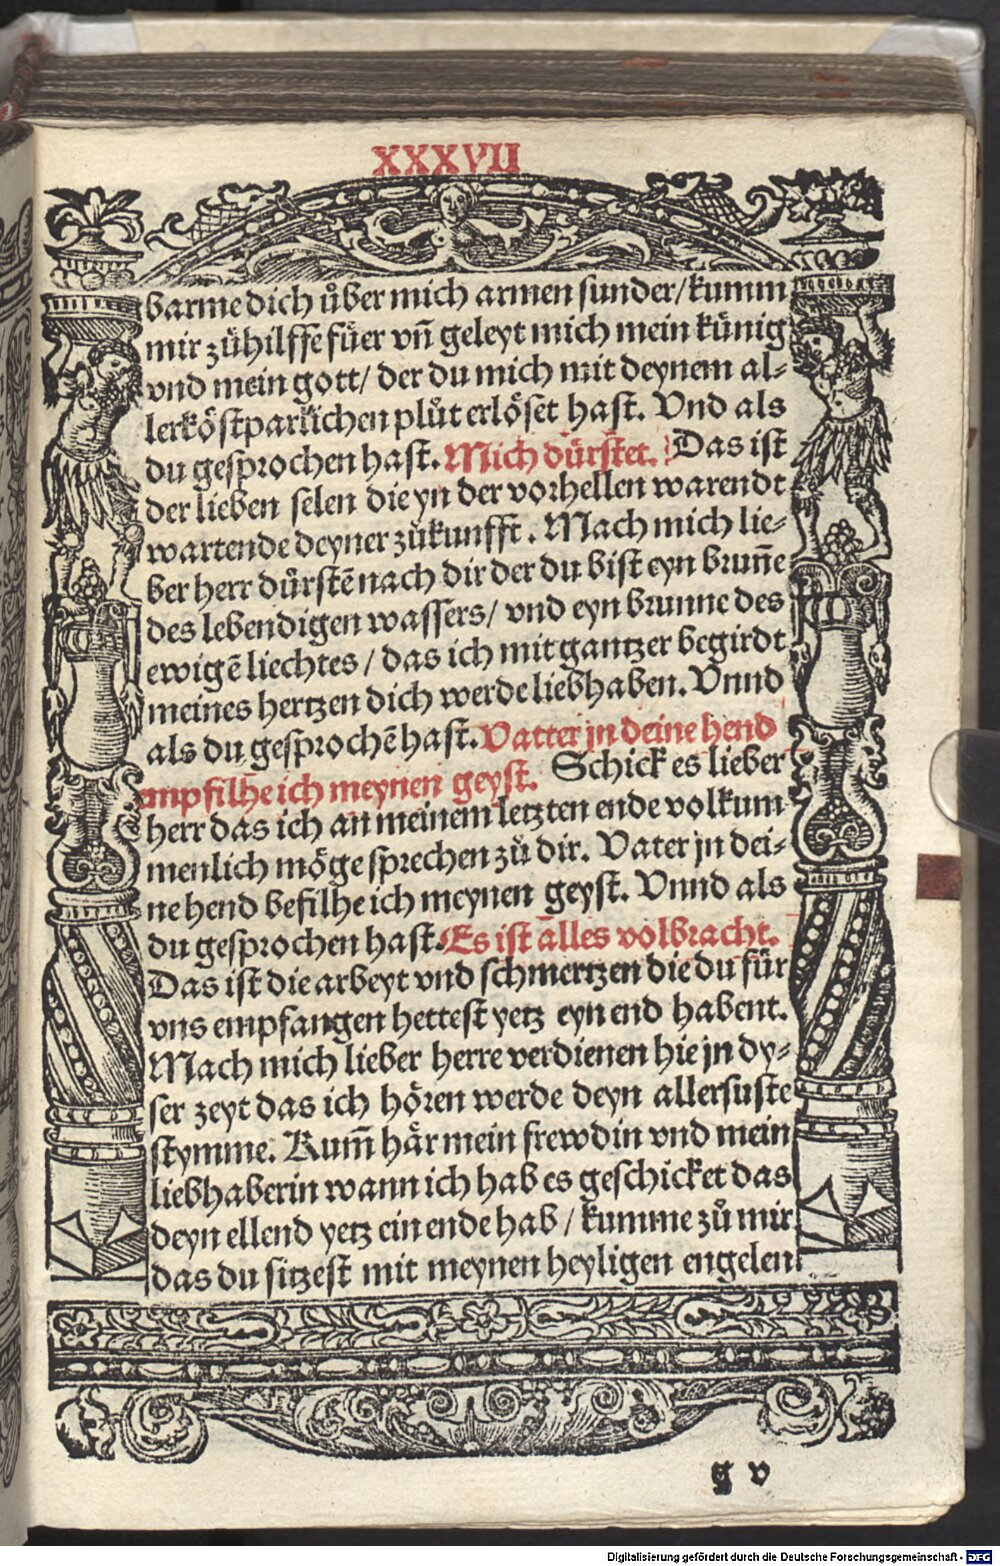 XXXVII
barme dich über mich armen sunder/kumm
mir zůhilffe füer vn̄ geleyt mich mein künig
vnd mein gott/ der du mich mit deynem al⸗
lerköstparlichen plůt erlöset hast. Vnd als
du gesprochen hast. Mich dürstet. Das ist
der lieben selen die yn der vorhellen warendt
wartende deyner zůkunfft. Mach mich lie⸗
ber herr dürstē nach dir der du bist eyn brun̄e
des lebendigen wassers/ vnd eyn brunne des
ewigē liechtes/ das ich mit gantzer begirdt
meines hertzen dich werde liebhaben. Vnnd
als du gesprochē hast. Vatter jn deine hend
empfilhe ich meynen geyst. Schick es lieber
herr das ich an meinem letzten ende volkum
menlich möge sprechen zů dir. Vater jn dei⸗
ne hend befilhe ich meynen geyst. Vnnd als
du gesprochen hast. Es ist alles volbracht.
Das ist die arbeyt vnd schmertzen die du für
vns empfangen hettest yetz eyn end habent.
Mach mich lieber herre verdienen hie jn dy⸗
ser zeyt das ich hören werde deyn allersuste
stymme. Kum̄ här mein frewdin vnd mein
liebhaberin wann ich hab es geschicket das
deyn ellend yetz ein ende hab/ kumme zů mir
das du sitzest mit meynen heyligen engelen
v
Digitalisierung gefördert durch die Deutsche Forschungsgemeinschaft - DFG